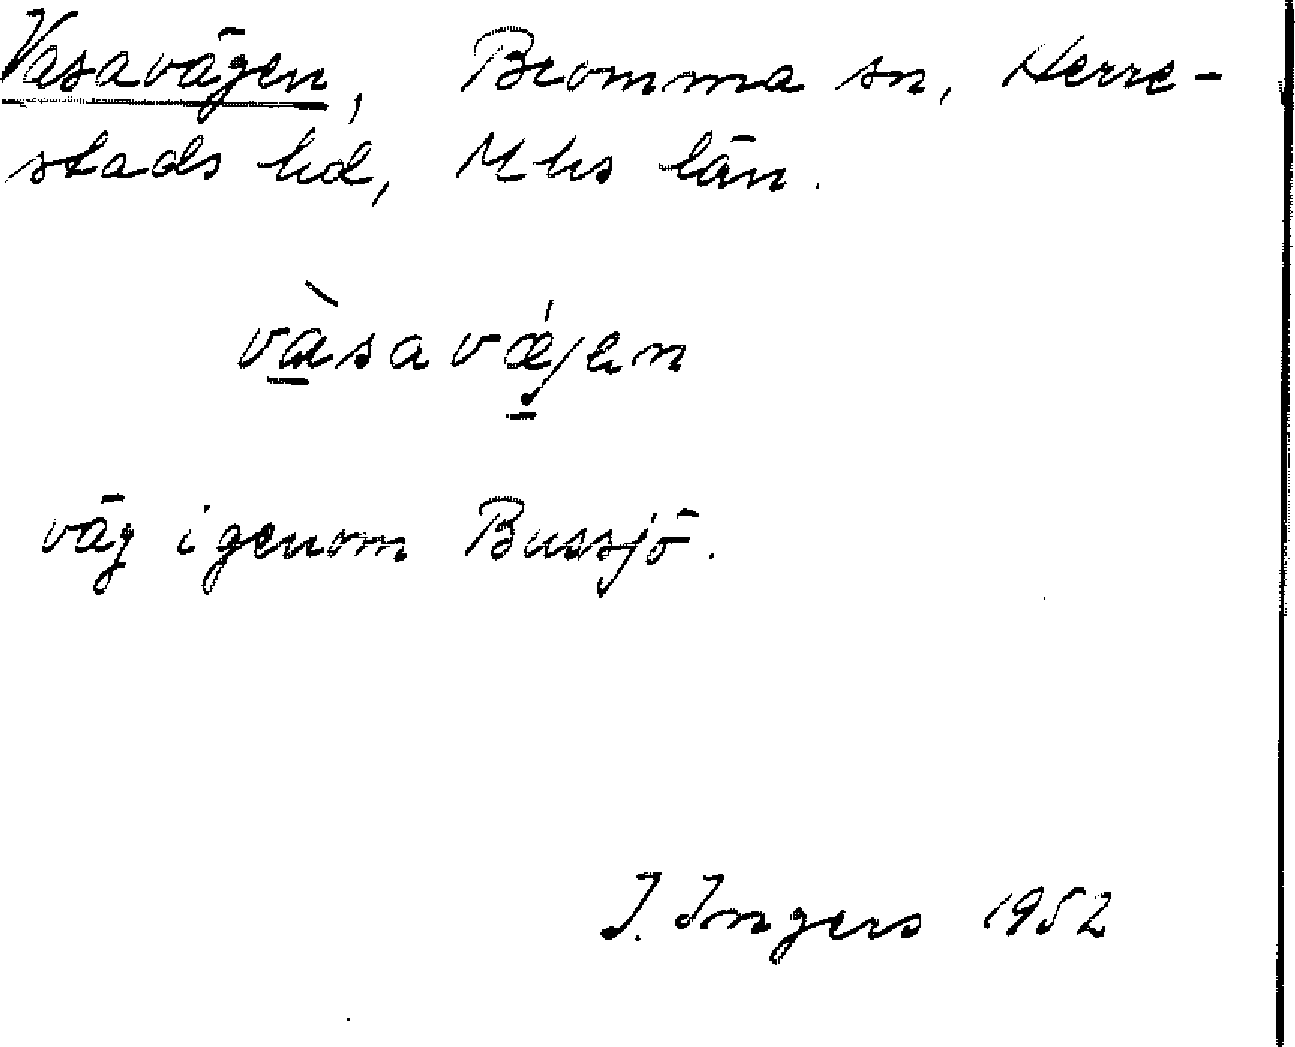 Vasavägen, Bromma sn, Herre-
stads hd, Mhs län.
vàsavǽjen
väg igenom Bussjö.
I. Ingers 1952